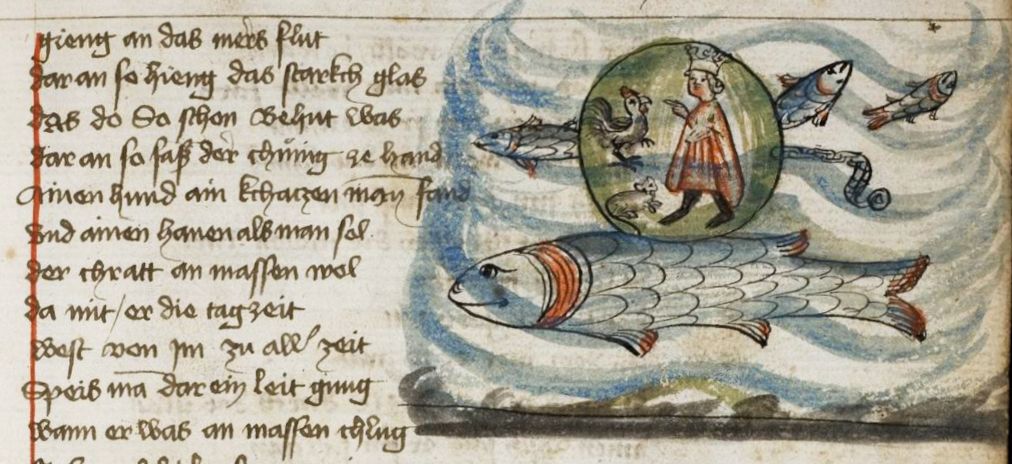 gieng an das mers flut
dar an so hieng das starkch glas
das do So schon behut was
dar an so saß der chünig ze hand
Ainen hund ain kchatzen man fand
Vnd ainen hanen als man sol
der chratt an massen wol
da mit / er die tagzeit
west von Im zu all zeit
Speis mā dar ein leit gnug
wann er was an massen chlug